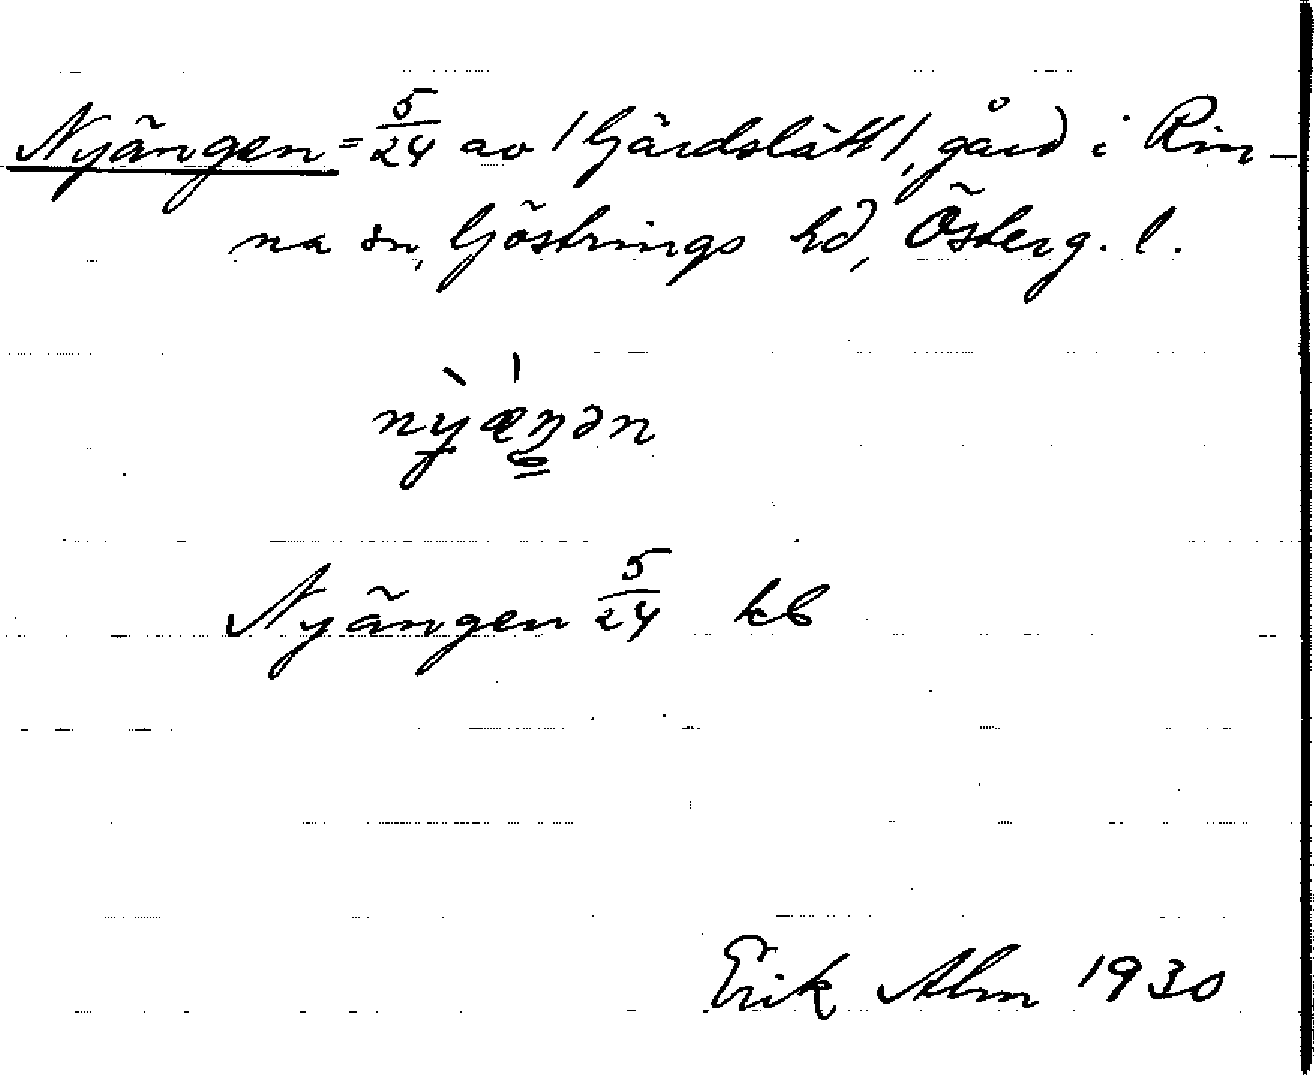 Nyängen = 5/24 av /Gärdslätt/, gård i Rin-
na sn, Göstrings hd, Österg. l.
nỳǽŋən
Nyängen 5/24 kb
Erik Alm 1930